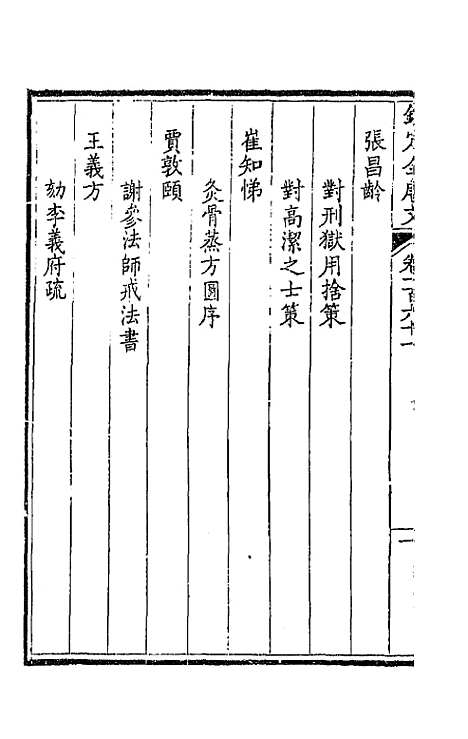 欽定全唐文 卷一百六十一 一
張昌齡
對刑獄用捨策
對高潔之士策
崔知悌
灸骨蒸方圖序
賈敦頤
謝參法師戒法書
王義方
劾李義府疏